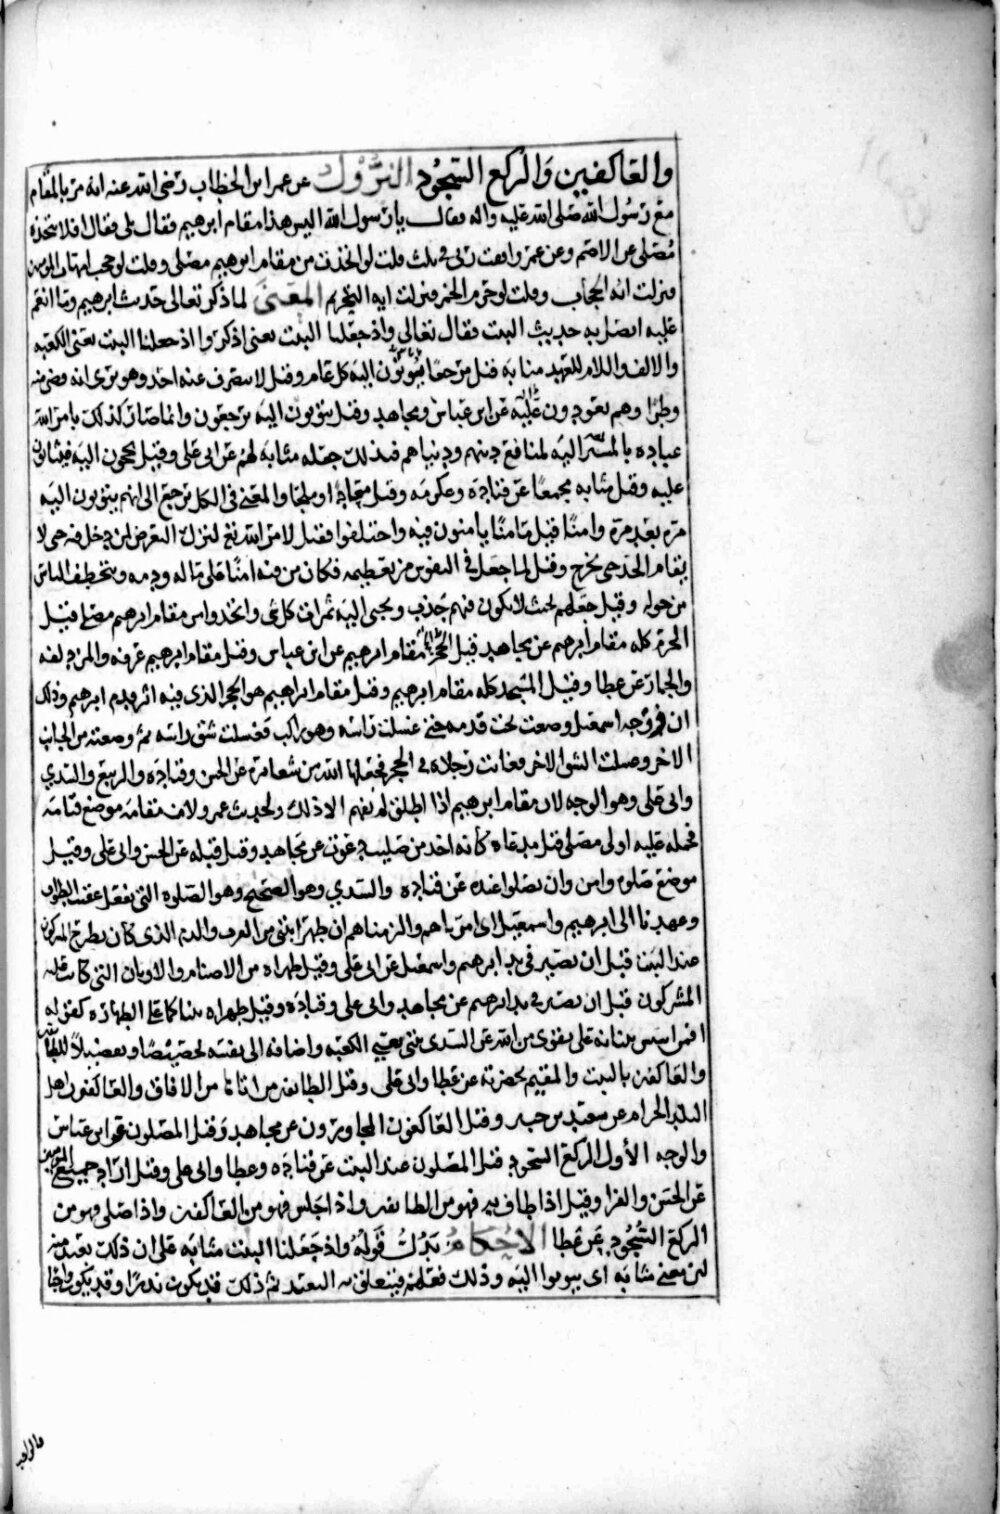 والعاكفين والركع السجود النزول عن عمر ابن الخطاب رضى الله عنه انه مر بالمقام
مع رسول الله صلى الله عليه واله فقال يا رسول الله اليس هذا مقام ابرهيم فقال بلى فقال افلا نتخذه
مصلى عن الاصم وعن عمر وافقت ربى فى ثلث قلت لو اتخذت من مقام ابرهيم مصلى وقلت لو حجب امهات المومنين
فنزلت اية الحجاب وقلت لو حرم الخمر فنزلت اية التحريم المعنى لما ذكر تعالى حديث ابرهيم وما انعم
عليه اتصل به حديث البيت فقال تعالى واذ جعلنا البيت يعنى اذكروا اذ جعلنا البيت يعنى الكعبة
والالف واللام للعهد مثابة قيل مرجعا يثوبون اليه كل عام وقيل لا ينصرف عنه احد وهو يرى انه قضى منه
وطرا وهم يعودون عليه عن ابن عباس ومجاهد وقيل يثوبون اليه يرجعون وانما صار كذلك بامر الله
عباده بالمسير اليه لمنافع دينهم ودنياهم فذلك جعله مثابة لهم عن ابى على وقيل يحجون اليه فيثابون
عليه وقيل مثابة مجمعا عن قتادة وعكرمة وقيل معاذا وملجا والمعنى فى الكل يرجع الى انهم يثوبون اليه
مرة بعد مرة وامنا قيل مامنا يامنون فيه واختلفوا فقيل لامر الله تع لنزك التعرض لمن دخل فيه حتى لا
يقام الحد حتى يخرج وقيل لما جعل فى النفوس من تعظيمه فكان من فيه امنا على ماله ودمه ويتخطف الناس
من حوله وقيل جعلهم بحيث لا يكون فيهم جذب ويجبى اليه ثمرات كل شى واتخذوا من مقام ابرهيم مصلى قيل
الحرم كله مقام ابرهيم عن مجاهد قيل الحج مقام ابرهيم عن ابن عباس وقيل مقام ابرهيم عرفة والمزدلفة
والجمار عن عطا وقيل المسجد كله مقام ابرهيم وقيل مقام ابراهيم هو الحجر الذى فيه اثر قدم ابرهيم وذلك
ان زوجه اسمعيل وضعت تحت قدمه حتى غسلت راسه وهو راكب فغسلت شق راسه ثم وضعته من الجانب
الاخر وغسلت الشق الاخر فغابت رجلاه فى الحجر فجعلها الله من شعائره عن الحسن وقتادة والربيع والسدي
وابى على وهو الوجه لان مقام ابرهيم اذا اطلق لم يفهم الا ذلك ولحديث عمر ولان مقامه موضع قيامه
فحمله عليه اولى مصلى قيل مدعاه كانه اخذ من صليت دعوت عن مجاهد وقيل قبلة عن الحسن وابى على وقيل
موضع صلوة وامر وان يصلوا عنده عن قتادة والسدي وهو الصحيح وهو الصلوة التى تفعل عقيب الطواف
وعهدنا الى ابرهيم واسمعيل اى امرناهم والزمناهم ان طهرا بيتى من الفرث والدم الذى كان يطرح المشركون
عند البيت قبل ان يصير فى يد ابرهيم واسمعيل عن ابى على وقيل طهراه من الاصنام والاوثان التى كانت عليه
المشركون قبل ان يصير فى يد ابرهيم عن مجاهد وابى على وقتادة وقيل طهراه بناكما على الطهارة كقوله
افمن اسس بنيانه على تقوى من الله عن السدى بيتى يعنى الكعبة واضافه الى نفسه تخصيصا وتفضيلا للطائفين
والعاكفين بالبيت والمقيم بحضرته عن عطا وابى على وقيل الطائفين من اتاه من الافاق والعاكفون اهل
البلد الحرام عن سعيد بن جبير وقيل العاكفون المجاورون عن مجاهد وقيل المصلون عن ابن عباس
والوجه الأول الركع السجود قيل المصلون عند البيت عن قتادة وعطا وابى على وقيل اراد جميع المومنين
عن الحسن والفرا وقيل اذا طاف به فهو من الطائفين واذا جلس فهو من العاكفين واذا صلى فهو من
الركع السجود عن عطا الاحكام يدل قوله واذ جعلنا البيت مثابة على ان ذلك تعبد منه
لان معنى مثابة اى يثوبوا اليه وذلك فعلهم فيتعلق به التعبد ثم ذلك قد يكون ندبا وقد يكون واجبا